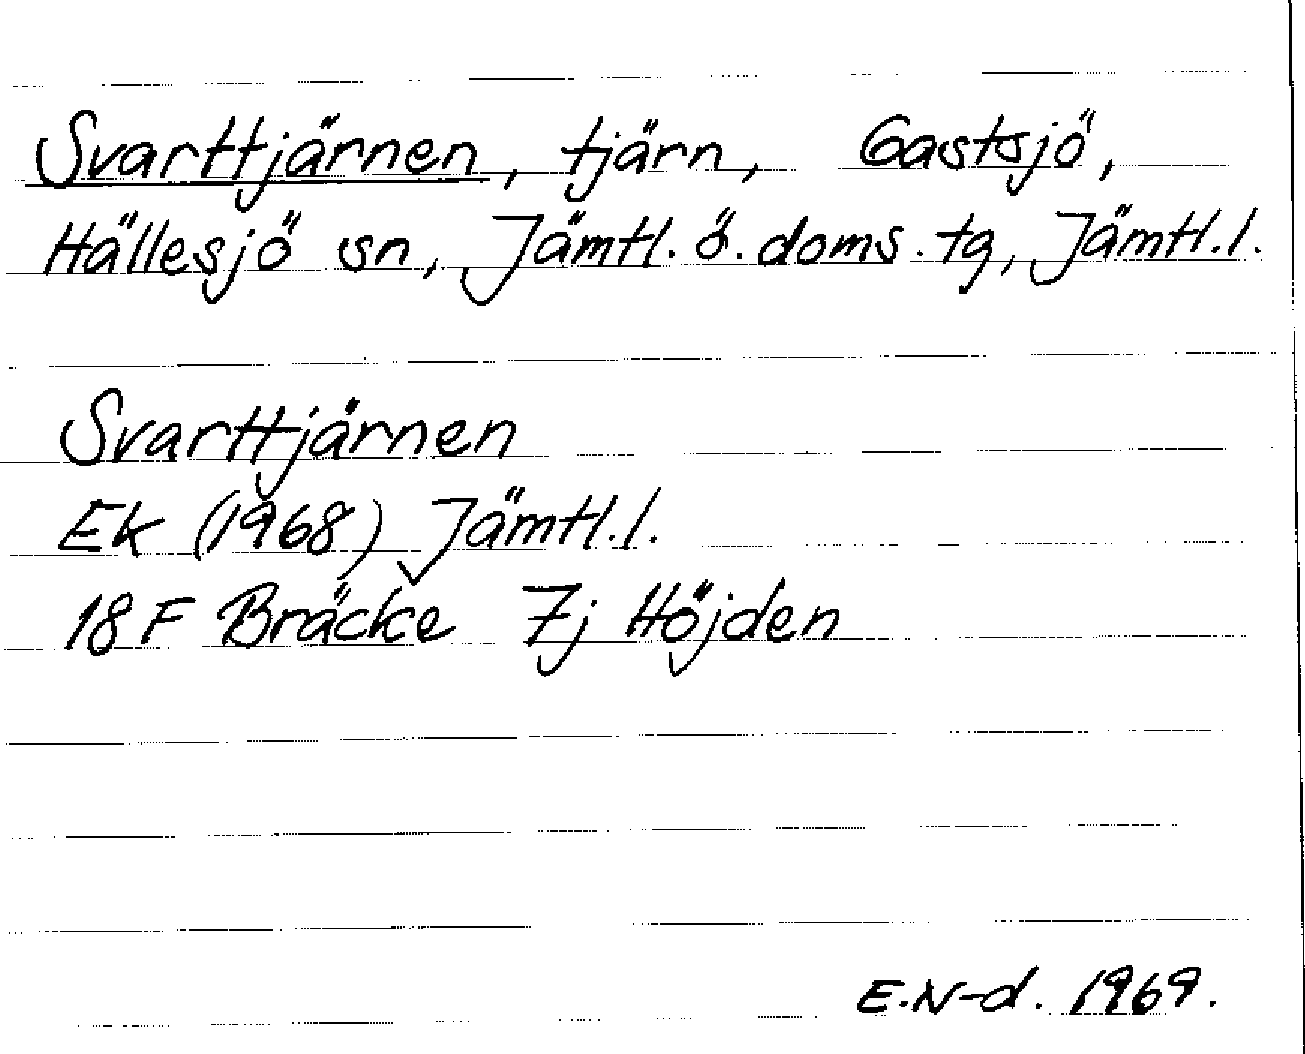 Svarttjärnen, tjärn, Gastsjö,
Hällesjö sn, Jämtl. ö. doms. tg, Jämtl.l.
Svarttjärnen
Ek (1968) Jämtl.l.
18F Bräcke 7j Höjden
E.N-d. 1969.